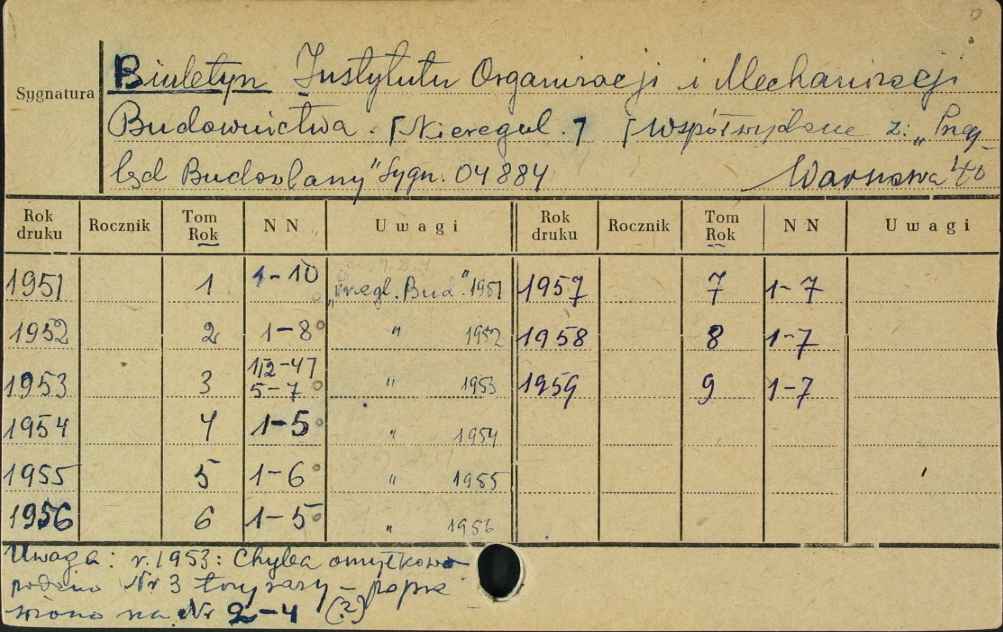 Sygnatura
Biuletyn Instytutu Organizacji i Mechanizacji
Budownictwa. [Nieregul.] [Współwydane z: „Przeg-
ląd Budowlany” Sygn. 04884 Warszawa
Rok druku Rocznik Tom Rok NN Uwagi Rok druku Rocznik Tom Rok NN Uwagi
1951 1 1-10 „Przegl. Bud.” 1951 1957 7 1-7
1952 2 1-8 " 1952 1958 8 1-7
1953 3 5-7 " 1953 1959 9 1-7
1954 4 1-5 " 1954
1955 5 1-6 " 1955
1956 6 1-5 " 1956
Uwaga: r. 1953: Chyba omyłkowo
podano Nr 3 trzy razy - popra
wiono na Nr 2-4 (?)